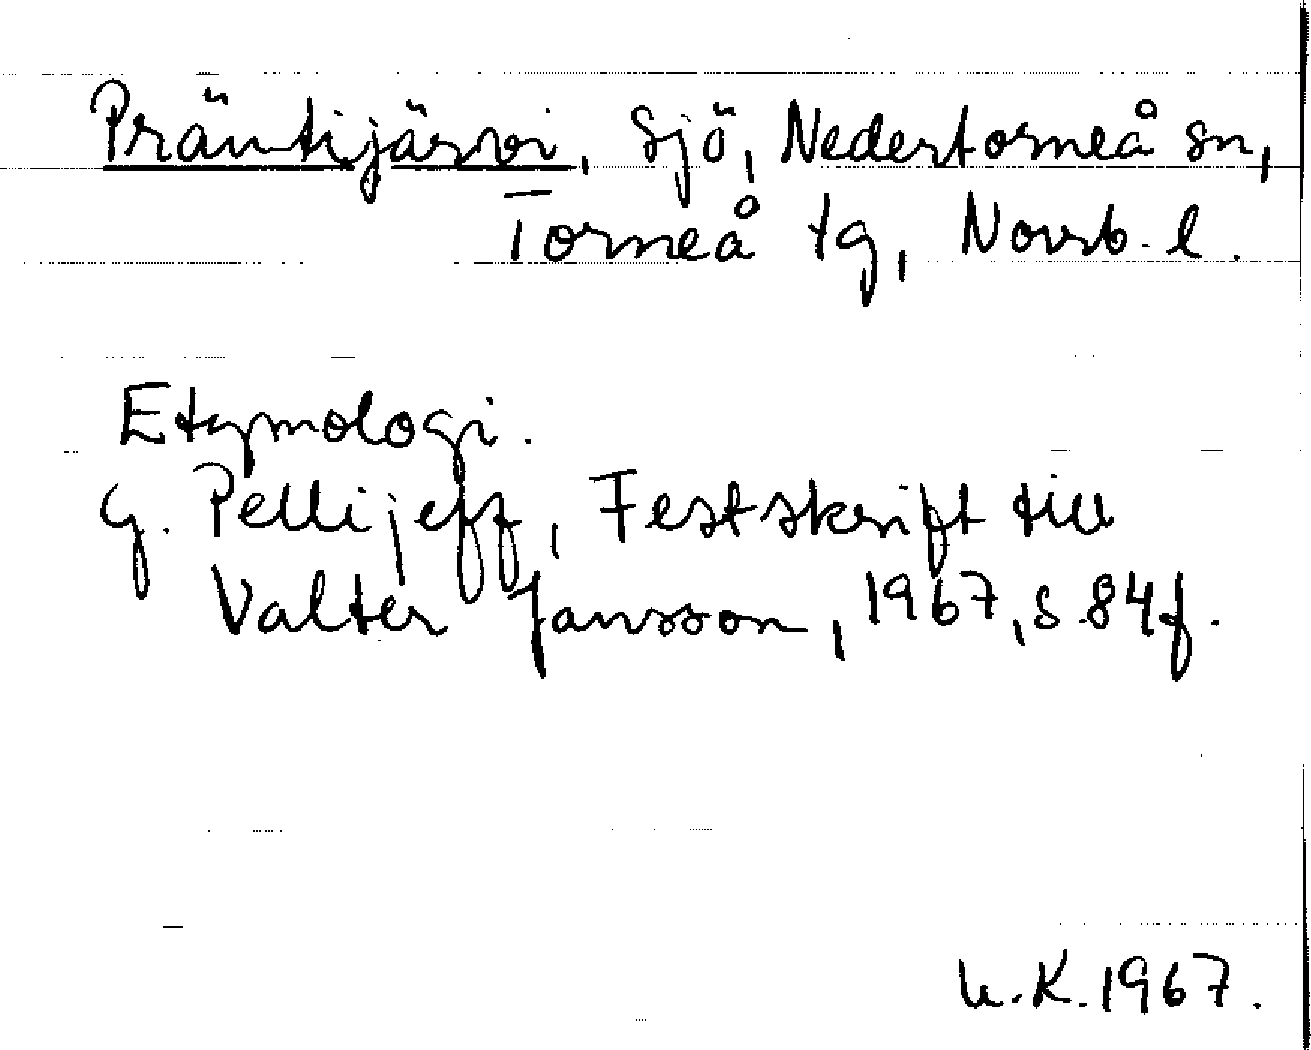 Präntijärvi, sjö, Nedertorneå sn,
Torneå tg, Norrb. l.
Etymologi.
G. Pellijeff, Festskrift till
Valter Jansson, 1967, s. 84 f.
U.K. 1967.